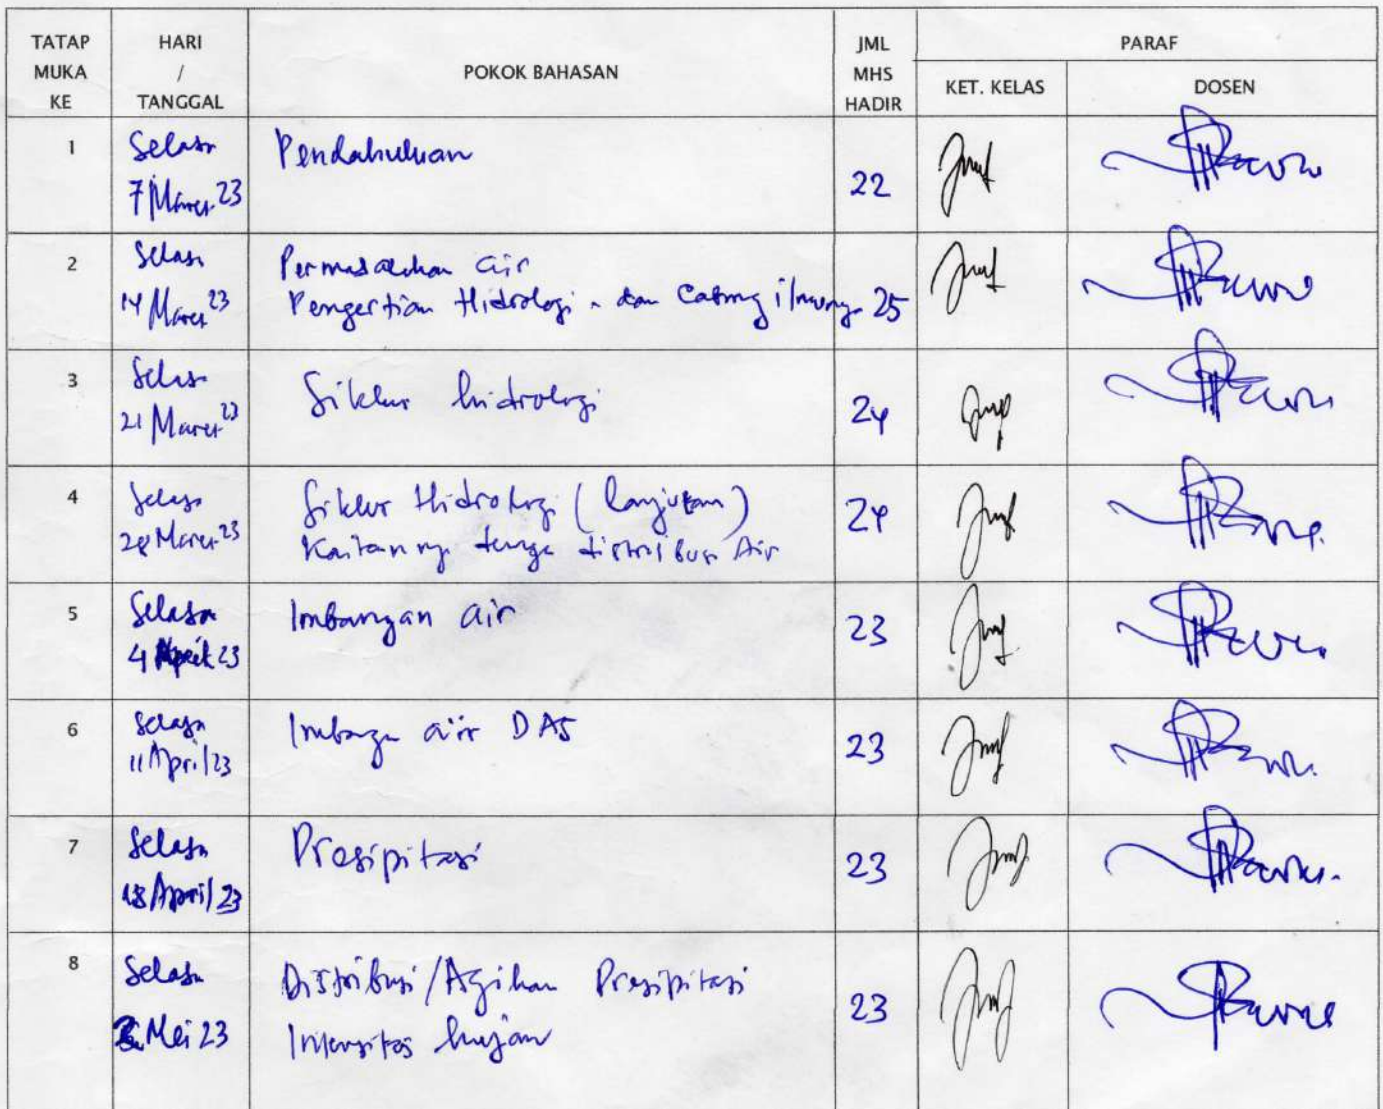 TATAP MUKA KE
HARI / TANGGAL
POKOK BAHASAN
JML MHS HADIR
PARAF
KET. KELAS
DOSEN
1
Selasa
7 Maret 23
Pendahuluan
22
2
Selasa
14 Maret 23
Permasalahan air
Pengertian Hidrologi - dan Cabang ilmunya
25
3
Selasa
21 Maret 23
Siklus hidrologi
24
4
Selasa
28 Maret 23
Siklus Hidrologi (lanjutan)
Kaitannya dengan distribusi Air
24
5
Selasa
4 April 23
Imbangan air
23
6
Selasa
11 April 23
Imbangan air DAS
23
7
Selasa
18 April 23
Presipitasi
23
8
Selasa
Mei 23
Distribusi/Agihan Presipitasi
Intensitas hujan
23